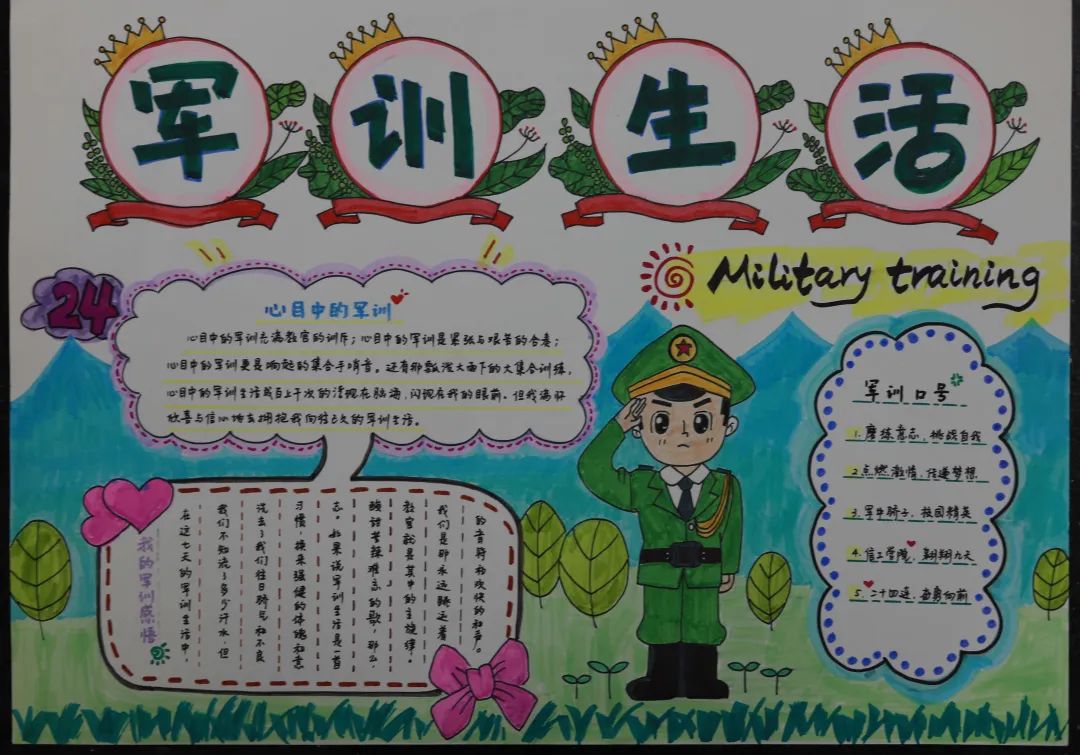 军训生活
Military training
24
心目中的军训
心目中的军训充满教官的训斥；心目中的军训是紧张与艰苦的合奏；
心目中的军训更是响起的集合手哨音。还有那瓢泼大雨下的大集合训练，
心目中的军训生活成百上千次的浮现在脑海，闪现在我的眼前。但我满怀
欣喜与信心地去拥抱我向往已久的军训生活。
我的军训感悟
在这七天的军训生活中，
我们不知流了多少汗水，但
洗去了我们往日骄气和不良
习惯，换来强健的体魄和意
志。如果说军训生活是一首
酸甜苦辣难言的歌，那么，
教官就是其中的主旋律。
我们是那永远跳运着
的音符和欢快的和声。
军训口号
1.磨练意志，挑战自我
2.点燃激情，传递梦想
3.军中骄子，校园精英
4.信工学院，翱翔九天
5.二十四连，奋勇向前